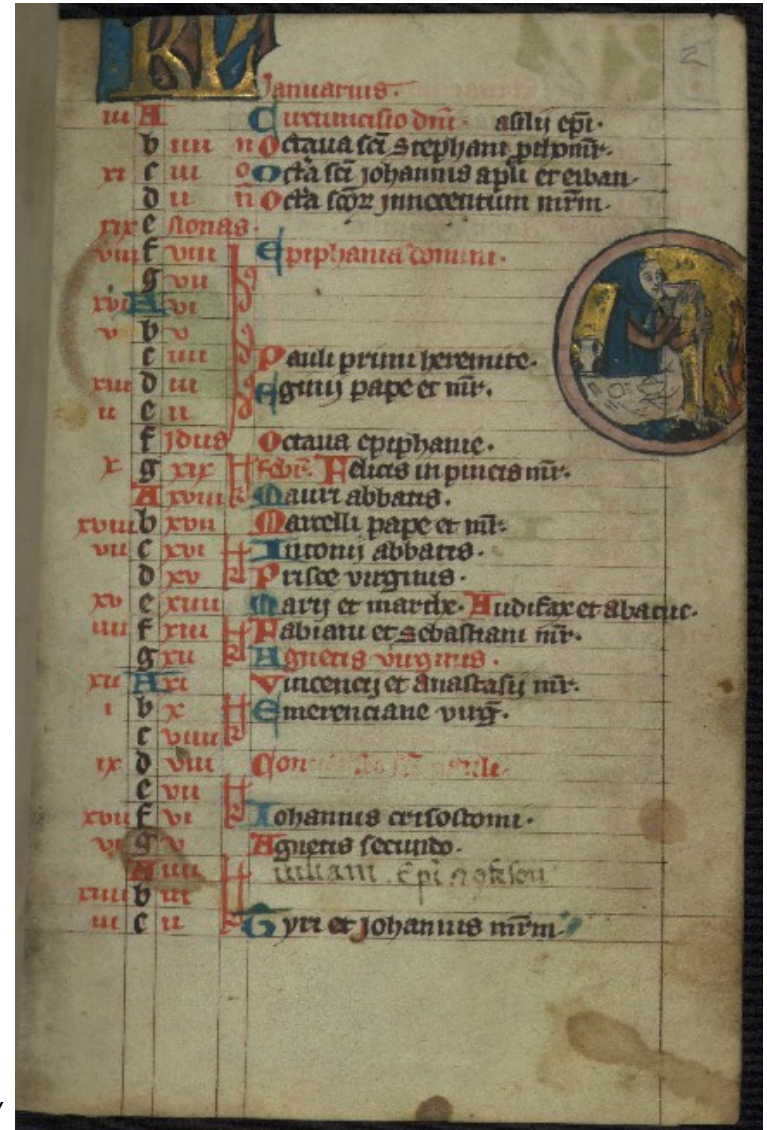 KL Januarius.
iii A Circumcisio dni. asilij epi.
b iiii n Octaua sci Stephani
xi c iii o Octa sci Johannis apli et ewan
d ii n Octa scor innocentum mrm.
xix e nonas.
viii f viii Epiphania domini.
g vii
xvi A vi
v b v
c iiii Pauli primi heremite.
xiii d iii Eginij pape et mr.
ii e ii
f idus Octaua epiphanie.
x g xix febr. Felicis in pincis mr.
A xviii Mauri abbatis.
xviii b xvii Marcelli pape et mr.
vii c xvi Antonij abbatis.
d xv Prisce virginis.
xv e xiiii Marij et marthe. Audifax et abacuc.
iiii f xiii Fabiani et Sebastiani mr.
g xii Agnetis virginis.
xii A xi Vincencij et Anastasij mr.
i b x Emerenciane virg.
c viiii
ix d viii Con
e vii
xvii f vi Iohannis crisostomi.
vi g v Agnetis secundo.
A iiii iuliani epi
xiiii b iii
iii c ii Cyri et Johannis mrm.